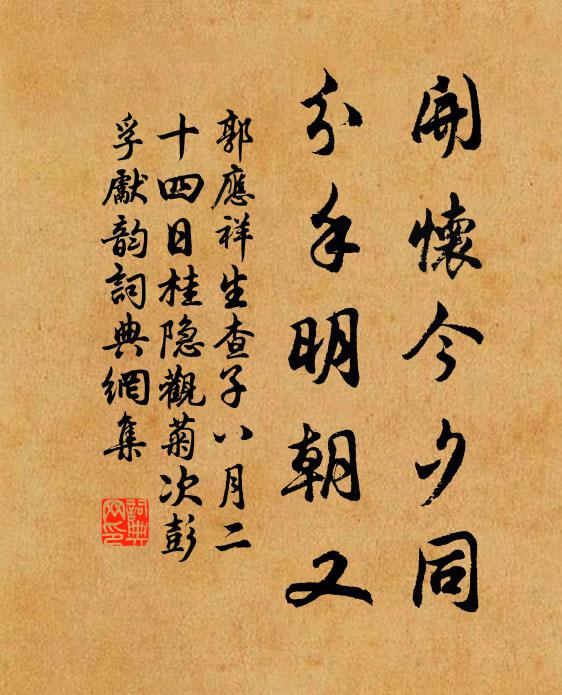 開懷今夕同
分手明朝又
郭應祥生查子八月二
十四日桂隐觀菊次彭
孚獻韵詞典網集
詞典网印